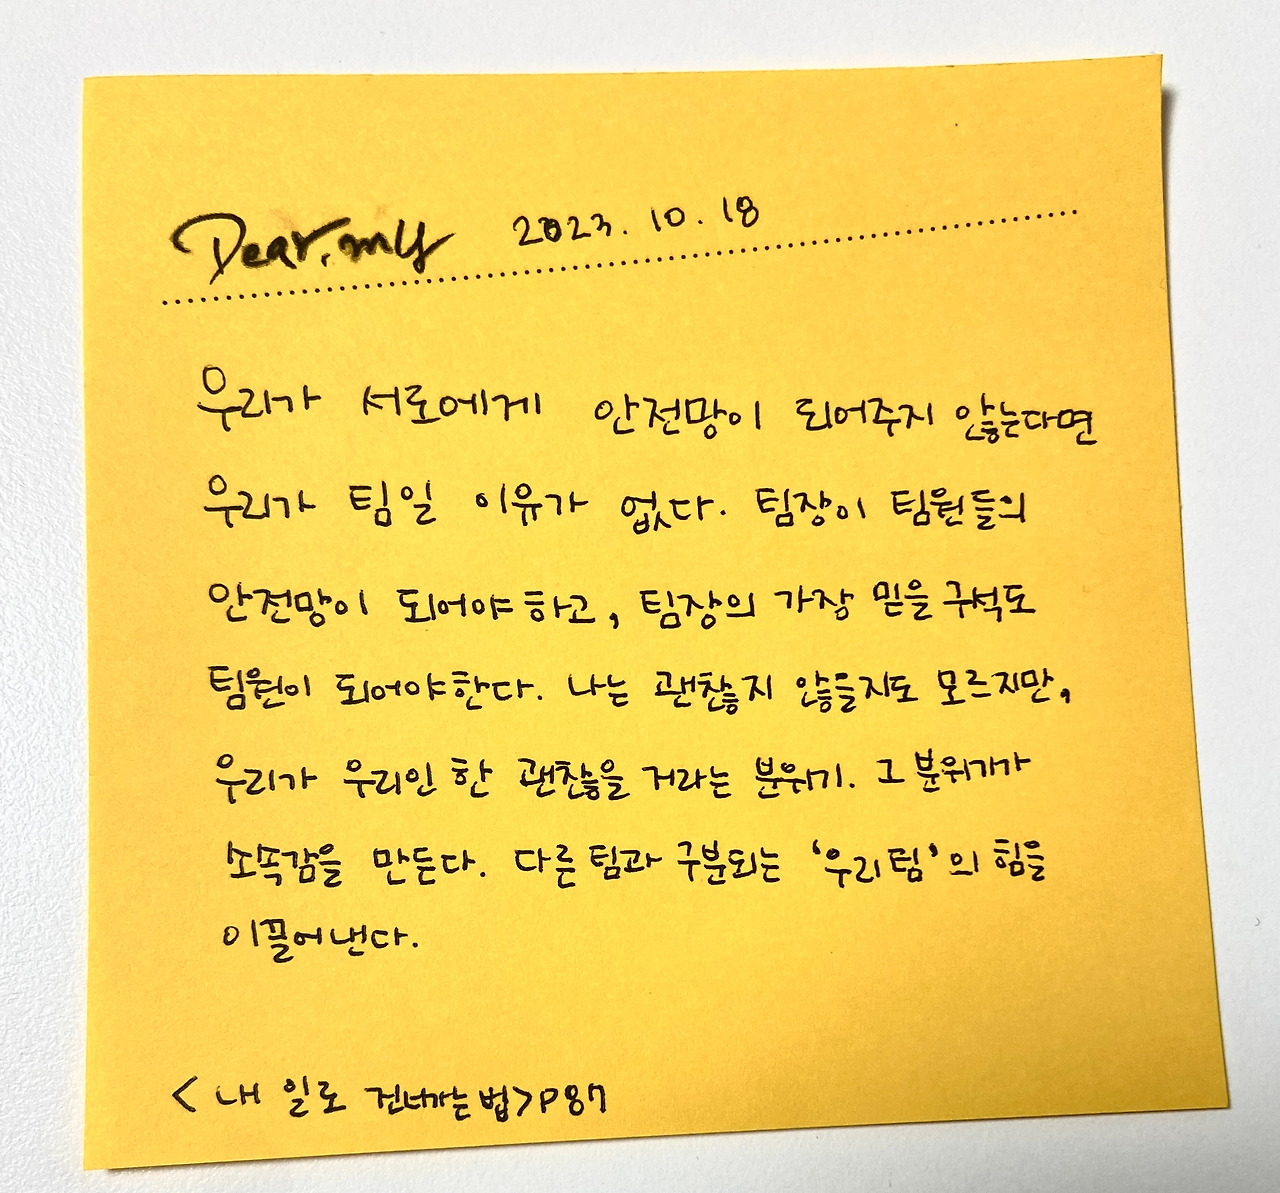 Dear. my 2023. 10. 18
우리가 서로에게 안전망이 되어주지 않는다면
우리가 팀일 이유가 없다. 팀장이 팀원들의
안전망이 되어야 하고, 팀장의 가장 믿을 구석도
팀원이 되어야 한다. 나는 괜찮지 않을지도 모르지만,
우리가 우리인 한 괜찮을 거라는 분위기. 그 분위기가
소속감을 만든다. 다른 팀과 구분되는 '우리팀'의 힘을
이끌어낸다.
<내 일로 건너가는 법>P87